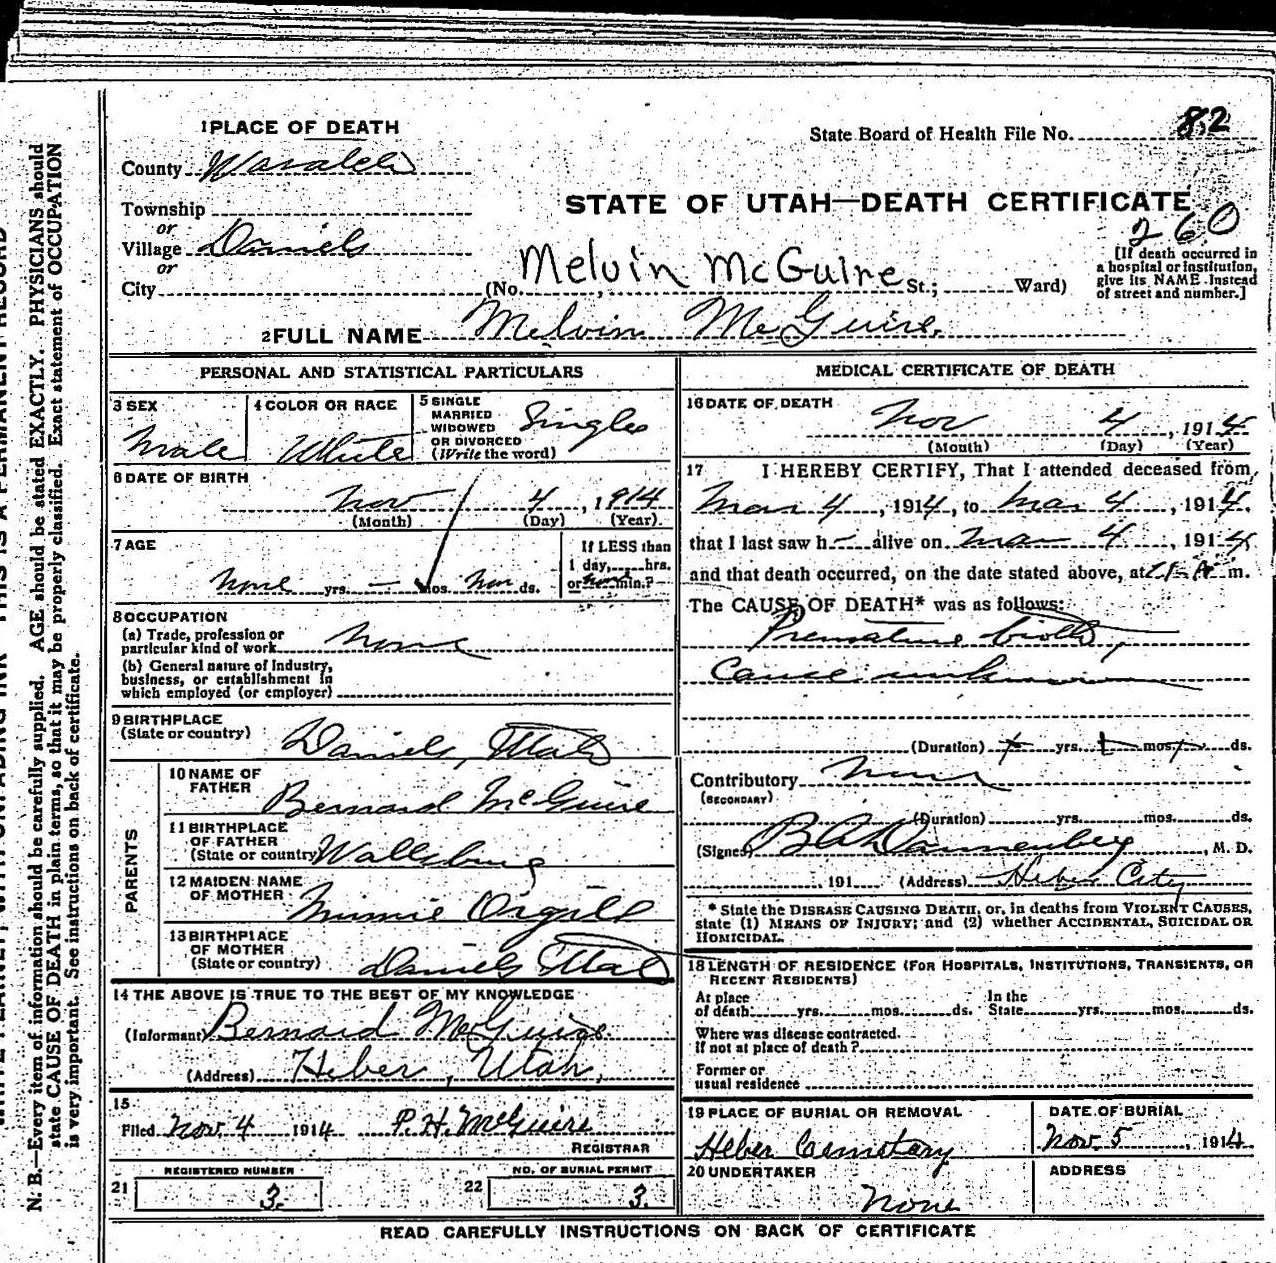 1 PLACE OF DEATH
State Board of Health File No. 82
County Wasatch
STATE OF UTAH—DEATH CERTIFICATE
Township
or
Village Daniels
260
or
City (No. Melvin McGuire St.; Ward)
[If death occurred in
a hospital or institution,
give its NAME instead
of street and number.]
2 FULL NAME Melvin McGuire
PERSONAL AND STATISTICAL PARTICULARS
3 SEX
Male
4 COLOR OR RACE
White
5 SINGLE
MARRIED
WIDOWED
OR DIVORCED
(Write the word)
Single
6 DATE OF BIRTH
Nov 4, 1914
(Month) (Day) (Year)
7 AGE
None yrs. — mos. ds.
If LESS than
1 day, hrs.
or min.?
8 OCCUPATION
(a) Trade, profession or
particular kind of work None
(b) General nature of Industry,
business, or establishment in
which employed (or employer)
9 BIRTHPLACE
(State or country) Daniels, Utah
PARENTS
10 NAME OF
FATHER Bernard McGuire
11 BIRTHPLACE
OF FATHER
(State or country) Wallsburg
12 MAIDEN NAME
OF MOTHER Minnie Orgill
13 BIRTHPLACE
OF MOTHER
(State or country) Daniels Utah
14 THE ABOVE IS TRUE TO THE BEST OF MY KNOWLEDGE
(Informant) Bernard McGuire
(Address) Heber, Utah,
15
Filed Nov. 4 1914 P. H. McGuire
REGISTRAR
REGISTERED NUMBER
21 3.
NO. OF BURIAL PERMIT
22 3.
MEDICAL CERTIFICATE OF DEATH
16 DATE OF DEATH
Nov 4, 1914
(Month) (Day) (Year)
17 I HEREBY CERTIFY, That I attended deceased from
4, 1914, to 4, 1914,
that I last saw h— alive on 4, 1914
and that death occurred, on the date stated above, at m.
The CAUSE OF DEATH* was as follows:
Premature birth,
Cause unknown
(Duration) yrs. mos. ds.
Contributory None
(SECONDARY)
(Duration) yrs. mos. ds.
(Signed) Dannenberg, M. D.
, 191 (Address) Heber City
* State the DISEASE CAUSING DEATH, or, in deaths from VIOLENT CAUSES,
state (1) MEANS OF INJURY; and (2) whether ACCIDENTAL, SUICIDAL OR
HOMICIDAL.
18 LENGTH OF RESIDENCE (FOR HOSPITALS, INSTITUTIONS, TRANSIENTS, OR
RECENT RESIDENTS)
At place
of death yrs. mos. ds.
In the
State yrs. mos. ds.
Where was disease contracted.
If not at place of death?
Former or
usual residence
19 PLACE OF BURIAL OR REMOVAL
Heber Cemetary
DATE OF BURIAL
Nov. 5, 1914
20 UNDERTAKER
None
ADDRESS
READ CAREFULLY INSTRUCTIONS ON BACK OF CERTIFICATE
N. B.—Every item of information should be carefully supplied. AGE should be stated EXACTLY. PHYSICIANS should
state CAUSE OF DEATH in plain terms, so that it may be properly classified. Exact statement of OCCUPATION
is very important. See instructions on back of certificate.